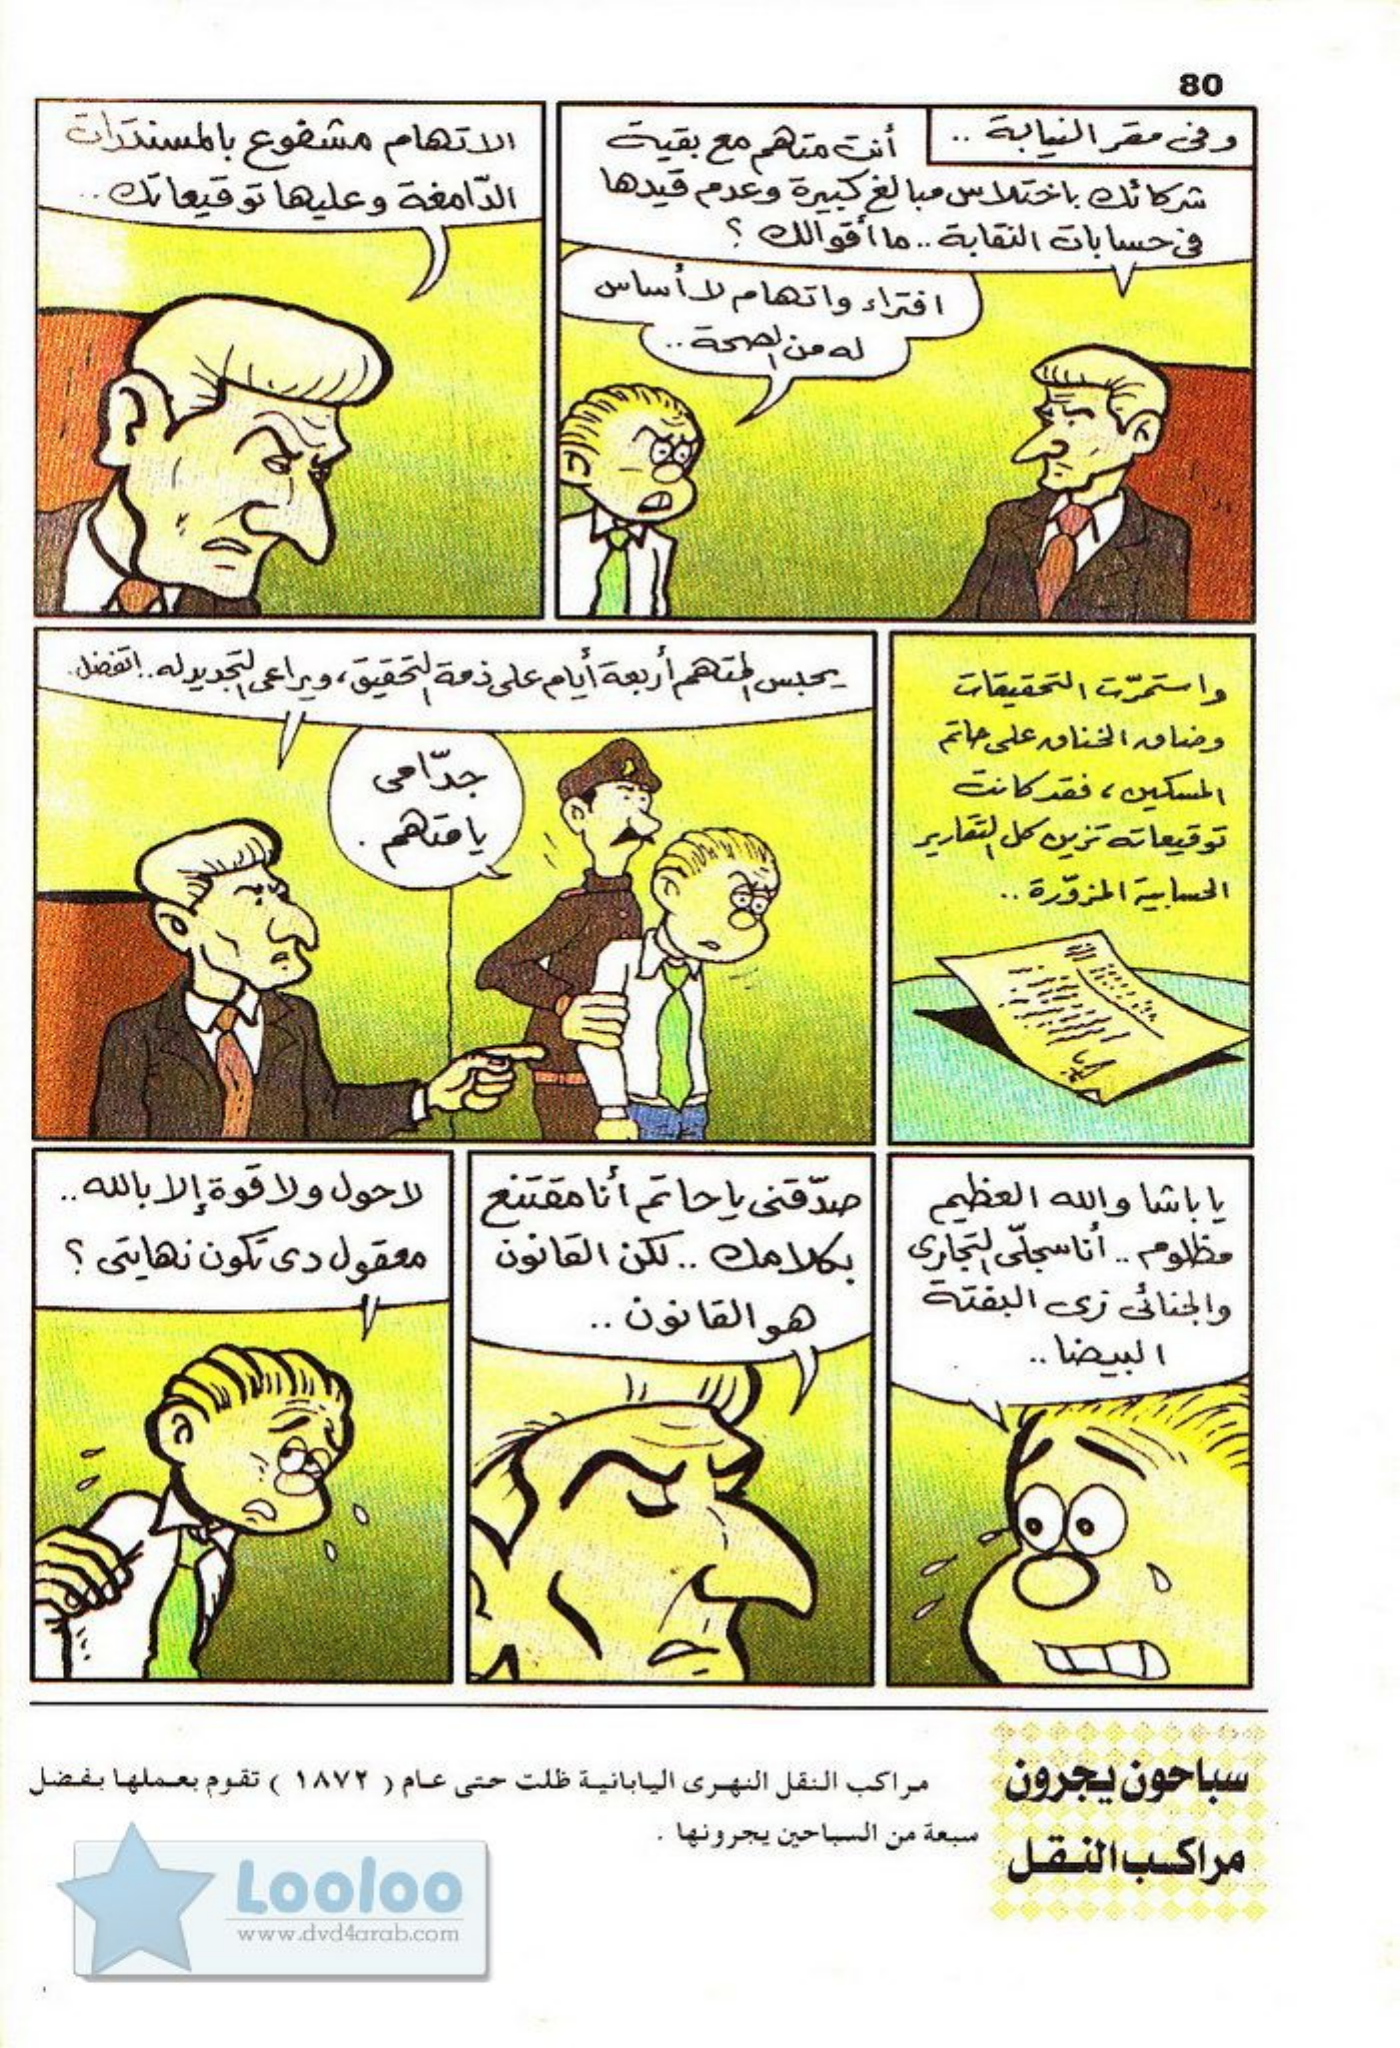 80
وفى مقر النيابة ..
أنت متهم مع بقية
شركائك باختلاس مبالغ كبيرة وعدم قيدها
فى حسابات النقابة .. ما أقوالك ؟
افتراء واتهام لا أساس
له من الصحة ..
الاتهام مشفوع بالمستندات
الدّامغة وعليها توقيعاتك ..
واستمرّت التحقيقات
وضاق الخناق على حاتم
المسكين ، فقد كانت
توقيعاته تزين كل التقارير
الحسابية المزوّرة ..
يحبس المتهم أربعة أيام على ذمة التحقيق ، ويراعى التجديد له .. اتفضل .
جدّامى
يا متهم .
يا باشا والله العظيم
مظلوم .. أنا سجلّى التجارى
والجنائى زى البفتة
البيضا ..
صدّقنى يا حاتم أنا مقتنع
بكلامك .. لكن القانون
هو القانون ..
لا حول ولا قوة إلا بالله ..
معقول دى تكون نهايتى ؟
سباحون يجرون
مراكب النقل
مراكب النقل النهرى اليابانية ظلت حتى عام ( ١٨٧٢ ) تقوم بعملها بفضل
سبعة من السباحين يجرونها .
Looloo
www.dvd4arab.com